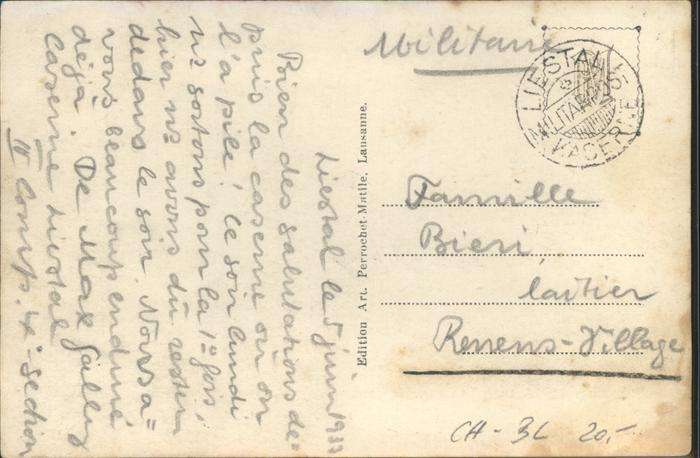 Liestal le 5 juin 1933
Bien des salutations de-
puis la caserne où on
l'a pile! Ce soir lundi
ns sortons pour la 1e fois,
hier ns avons du rester
dedans le soir. Nous a=
vons beaucoup enduré
déjà. De Max Gallay
Caserne Liestal
II Comp. 4e section
Militaire
LIESTAL
MILITÄRPOST
KASERNE
Edition Art. Perrochet-Matile, Lausanne.
Famille
Bieri,
laitier
Renens-Village
CH - BL 20,-